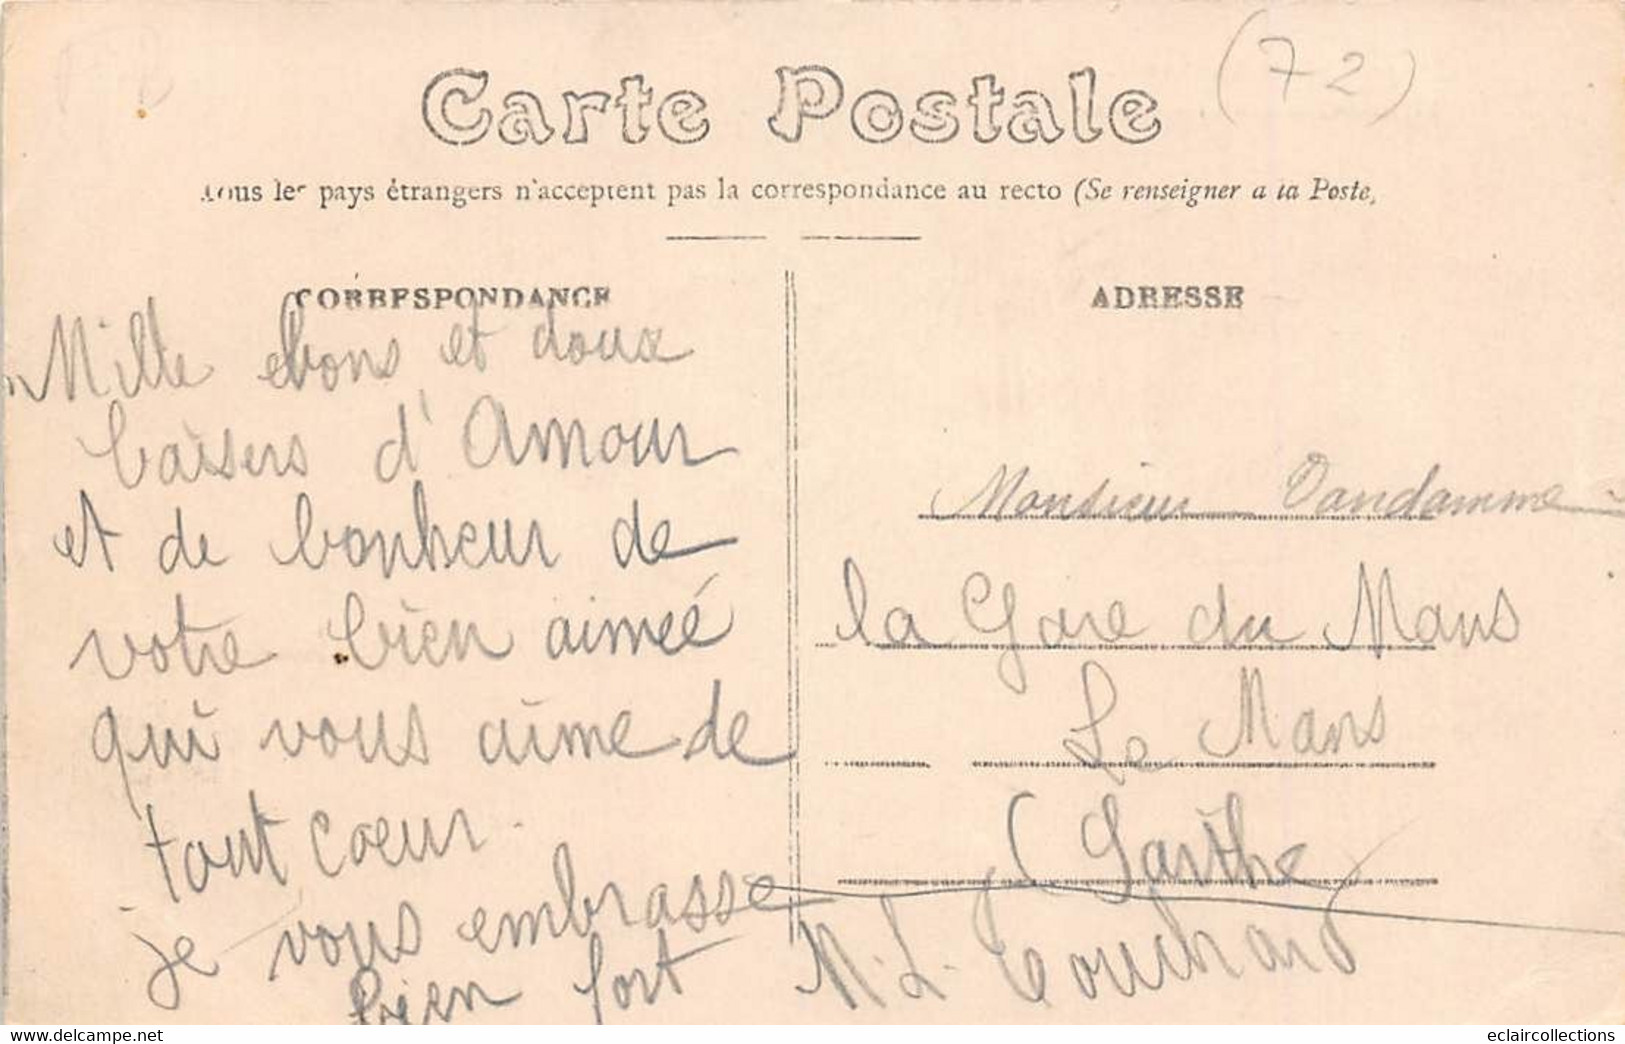 (72)
Carte Postale
Tous les pays étrangers n'acceptent pas la correspondance au recto (Se renseigner a la Poste,
CORRESPONDANCE
Mille bons et doux
baisers d'Amour
et de bonheur de
votre bien aimeé
qui vous aime de
tout cœur.
je vous embrasse
bien fort
M. L. Touchard
ADRESSE
Monsieur Vandamme
la Gare du Mans
Le Mans
(Sarthe
www.delcampe.net
eclaircollections